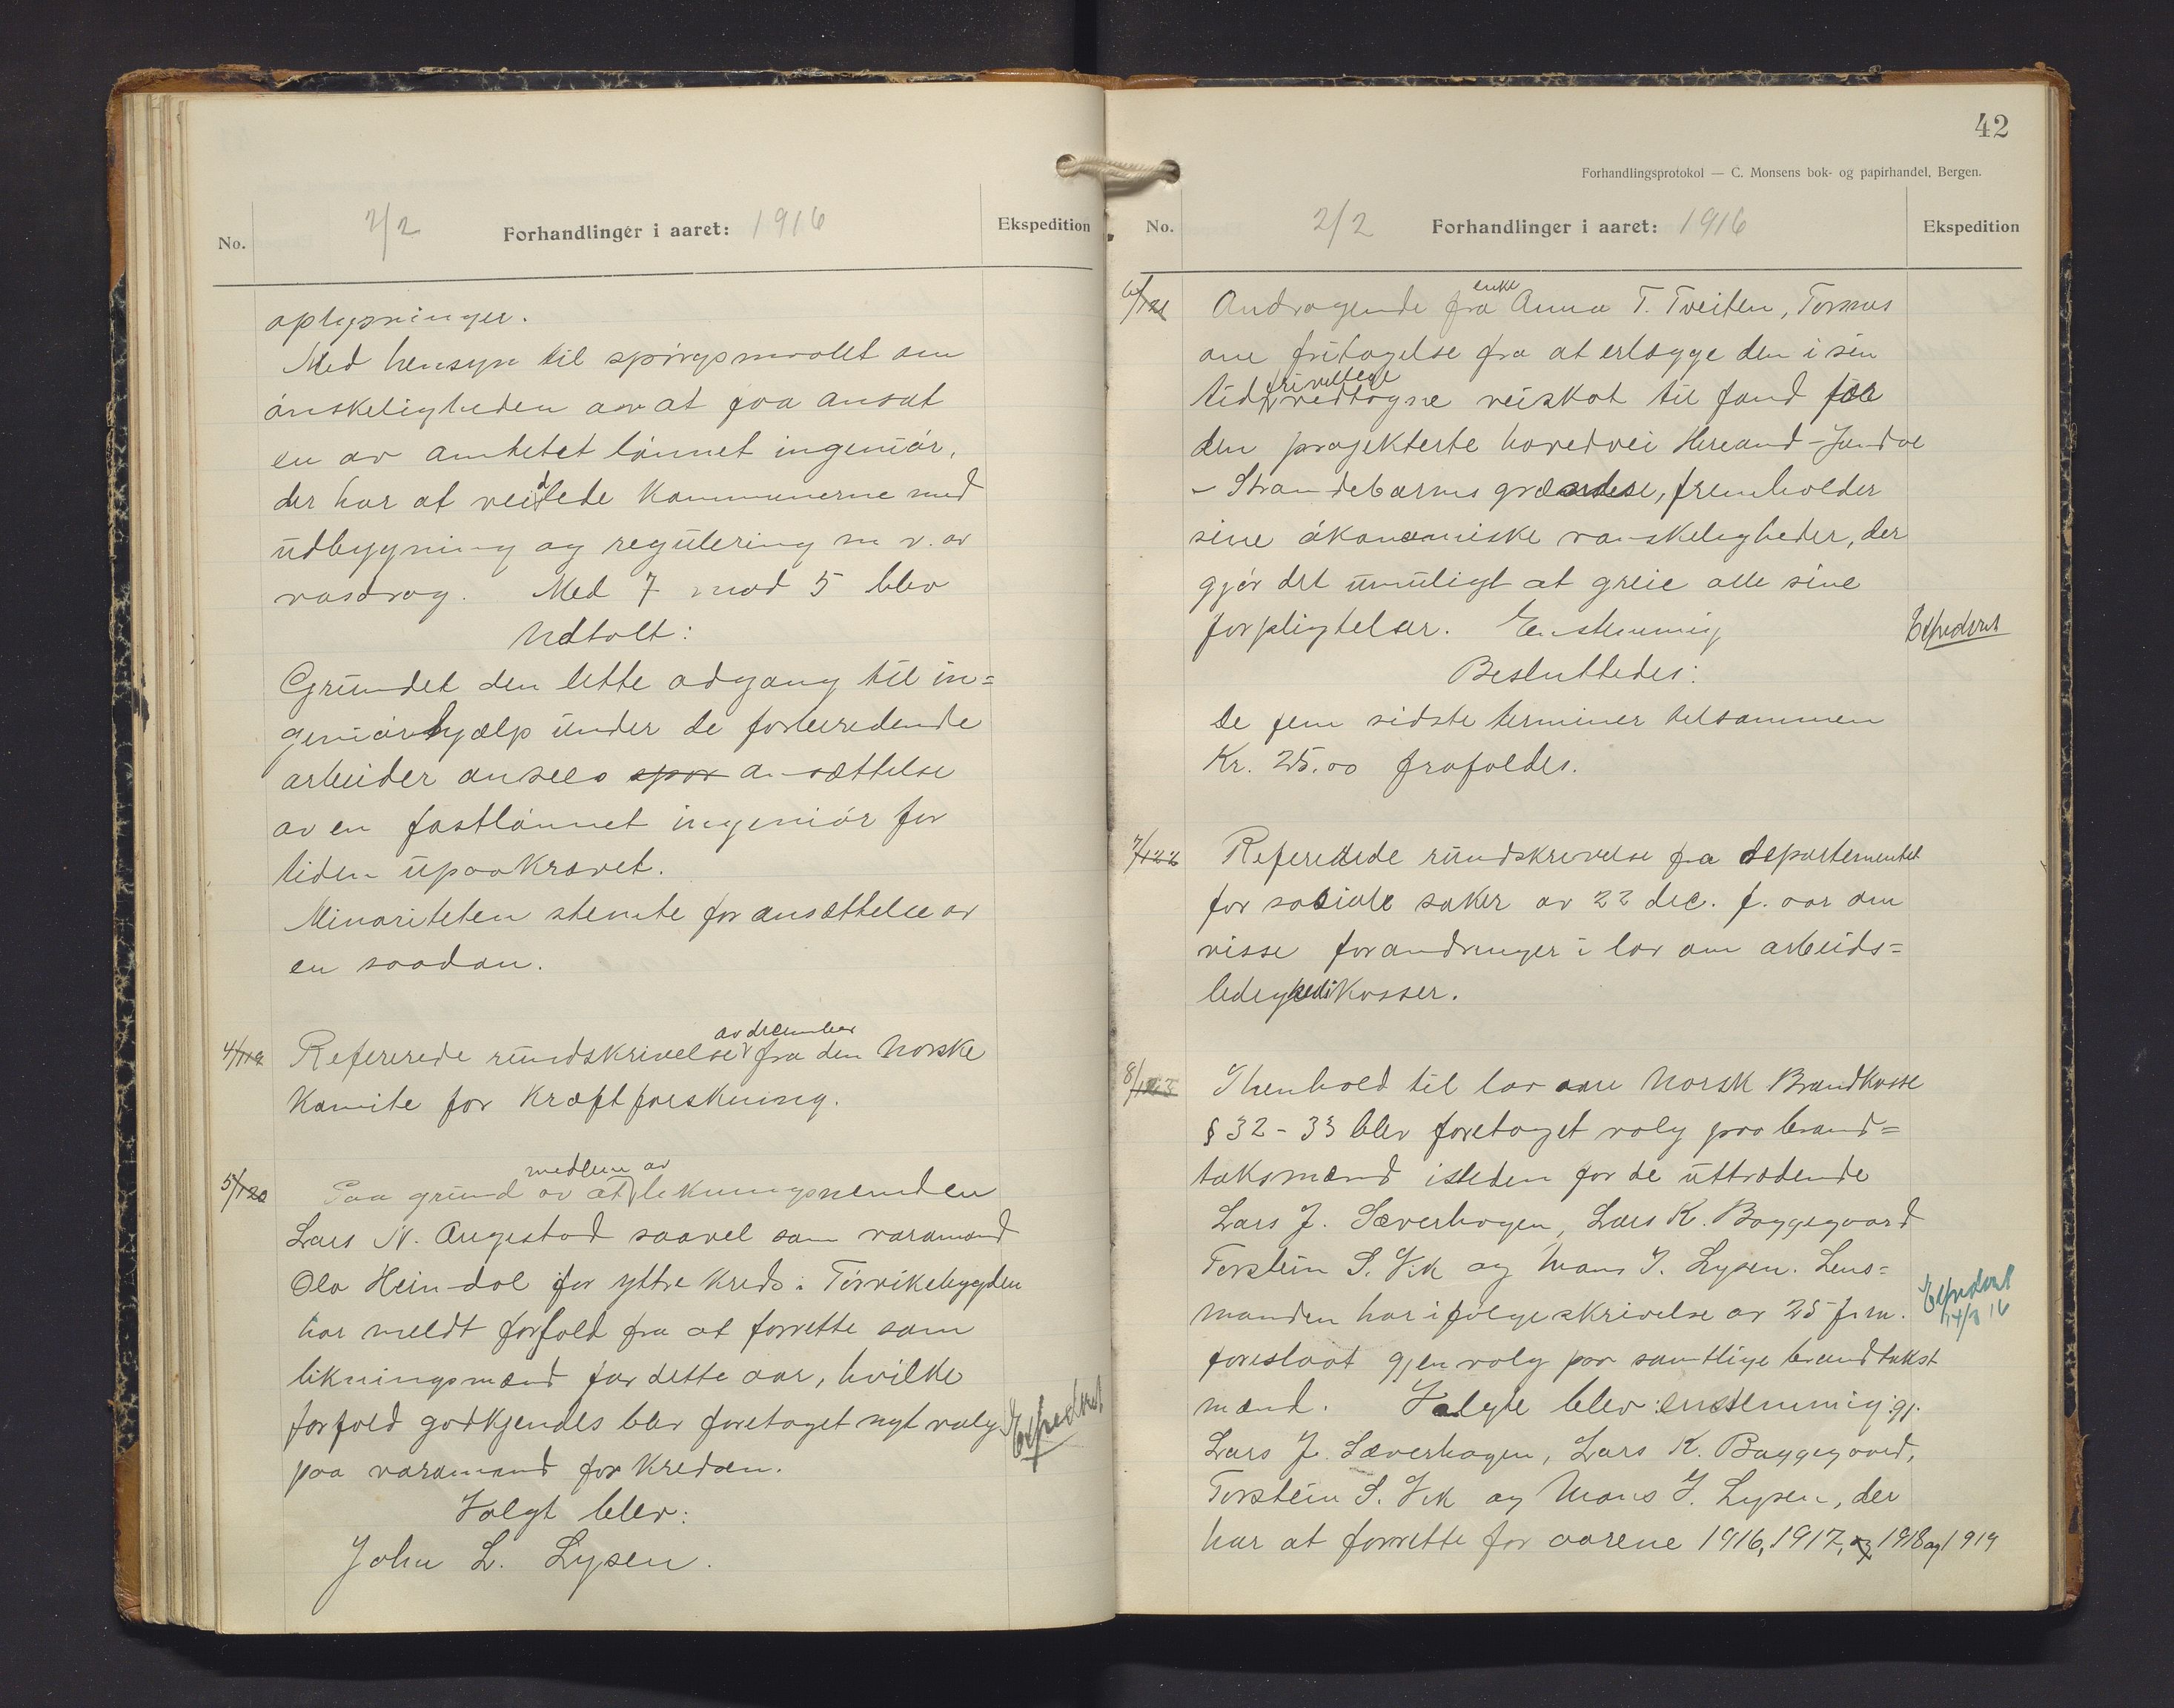 No.
2/2
Forhandlinger i aaret: 1916
Ekspedition
oplysninger.
Med hensyn til spørgsmaalet om
ønskeligheden av at faa ansat
en av amtetet lønnet ingeniør,
der har at veilede kommunerne med
utbygning og regulering m v. av
vasdrag. Med 7 mod 5 blev
Uttalt:
Grundet den lette adgang til in=
geniørhjælp under de forberedende
arbeider ansees spor ansættelse
av en fastlønnet ingeniør for
tiden upaakrævet.
Minoriteten stemte for ansættelse av
en saadan.
4/119
av december
Refererede rundskrivelse fra den Norske
Komite for Kræftforskning.
5/120
medlem av
Paa grund av at likningsnemden
Lars N. Augestad saavel som varamand
Ola Heindal for yttre kreds i Tørvikebygden
har meldt forfald fra at forrette som
likningsmænd for dette aar, hvilke
forfald godkjendes blev foretaget nyt valg
Expedert
paa varamand for kredsen.
Valgt blev:
John L. Lysen.
42
Forhandlingsprotokol — C. Monsens bok- og papirhandel, Bergen.
No.
2/2
Forhandlinger i aaret: 1916
Ekspedition
6/121
enke
Andragende fra Anna T. Tveiten, Tornes
om fritagelse fra at erlægge den i sin
frivillige
tid vedtagne veiskat til fond for
den projekterte hovedvei Hereand-Jondal
- Strandebarms grændse, fremholder
sine økonomiske vanskeligheder, der
gjør det umuligt at greie alle sine
forpligtelser. Enstemmig
Expedert
Besluttedes:
De fem sidste terminer tilsammen
Kr. 25.00 frafaldes.
7/122
Refererede rundskrivelse fra Departementet
for sociale saker av 22 dec. f. aar om
visse forandringer i lov om arbeids=
ledighedskasser.
8/123
I henhold til lov om Norsk Brandkasse
§ 32 - 33 blev foretaget valg paa brand=
takstmænd isteden for de uttrædende
Lars J. Sæverhagen, Lars K. Baggegaard
Torstein S. Vik og Mons J. Lysen. Lens=
manden har ifølge skrivelse av 25 f.m.
Expedert
14/3 16
foreslaat gjenvalg paa samtlige brandtakst
mænd. Valgte blev: enstemmig: gj.
Lars J. Sæverhagen, Lars K. Baggegaard,
Torstein S. Vik og Mons J. Lysen, der
har at forrette for aarene 1916, 1917, og 1918 og 1919